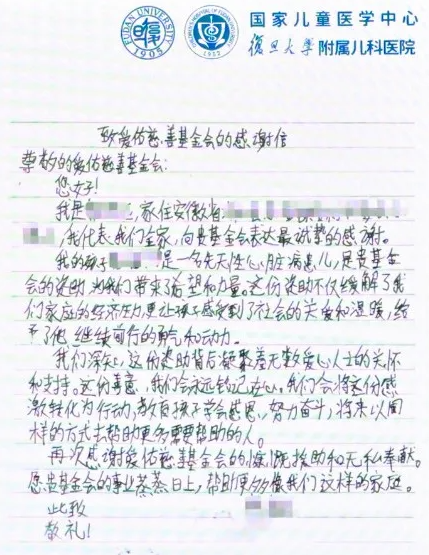 FUDAN UNIVERSITY
1905
1952
国家儿童医学中心
復旦大学附属儿科医院
致爱佑慈善基金会的感谢信
尊敬的爱佑慈善基金会:
您好!
我是,家住安徽省
,我代表我们全家,向贵基金会表达最诚挚的感谢。
我的孩子是一个先天性心脏病患儿,是贵基金
会的资助,为我们带来了希望和力量。这份资助不仅缓解了我
们家庭的经济压力,更让孩子感受到了社会的关爱和温暖,给
予了他继续前行的勇气和动力。
我们深知,这份资助背后凝聚着无数爱心人士的关怀
和支持。这份善意,我们会永远铭记在心。我们会将这份感
激转化为行动,教育孩子学会感恩,努力奋斗,将来以同
样的方式去帮助更多需要帮助的人。
再次感谢爱佑慈善基金会的慷慨援助和无私奉献。
愿贵基金会的事业蒸蒸日上,帮助更多像我们这样的家庭。
此致
敬礼!